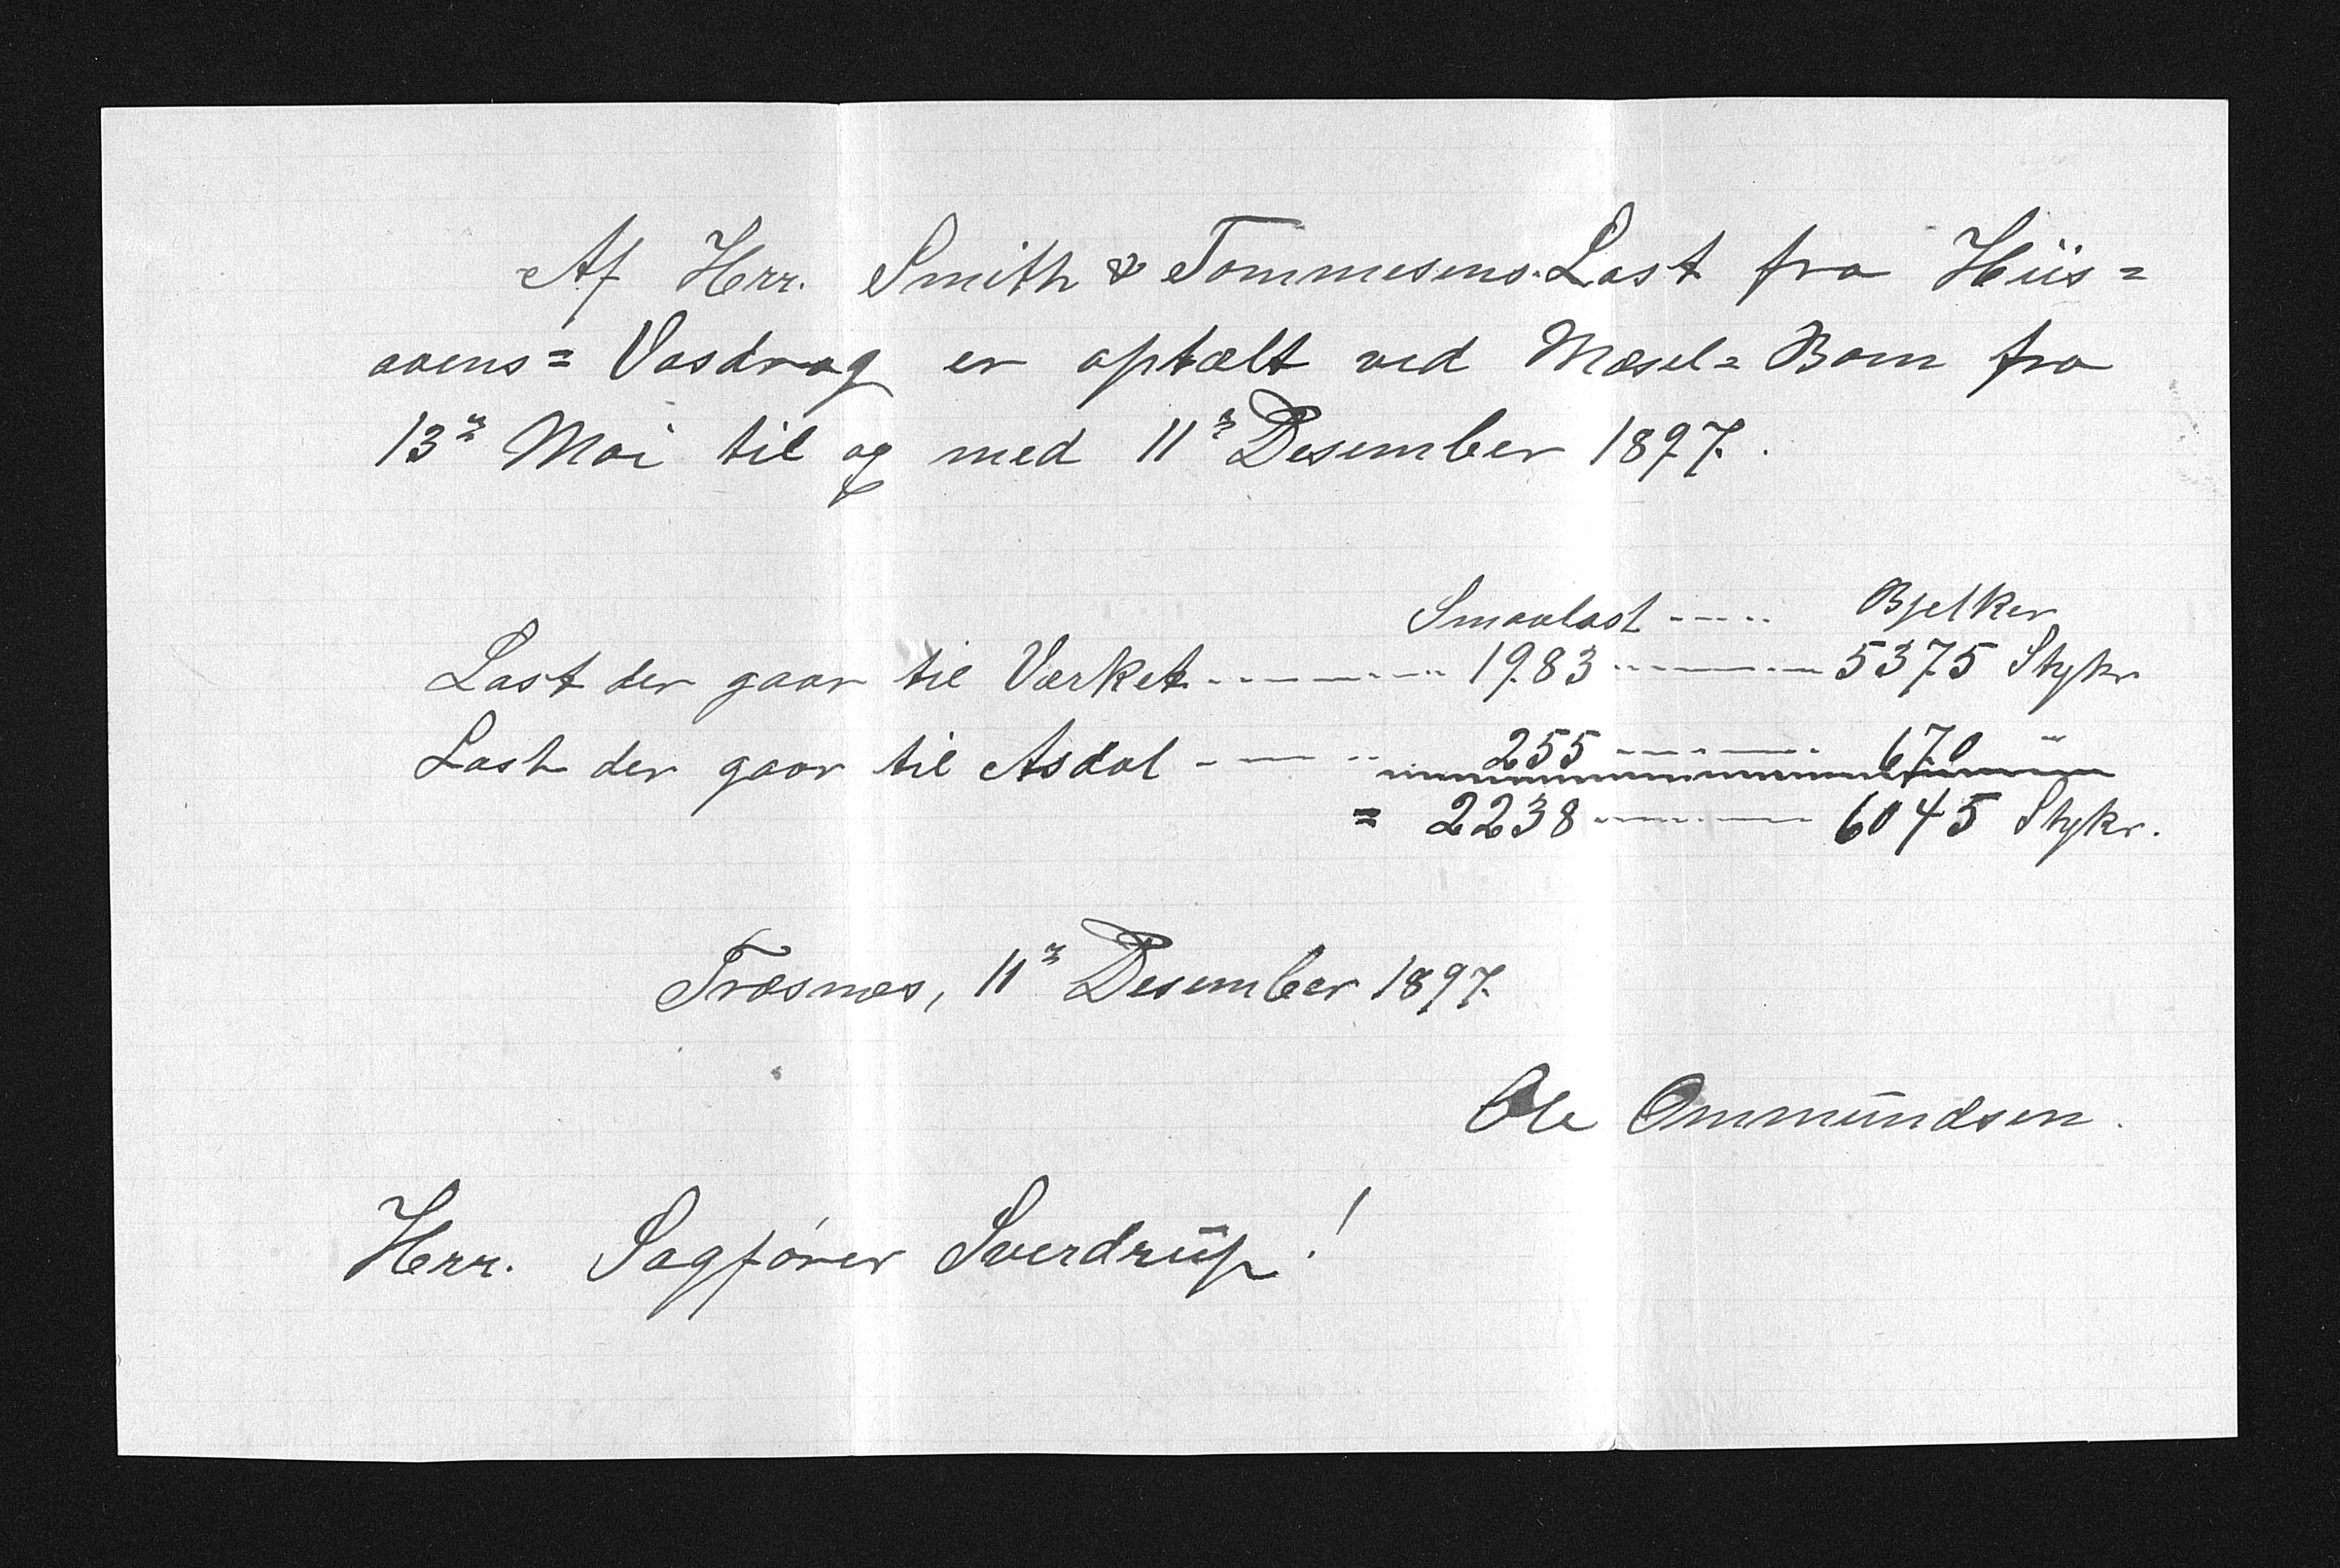 Af Herr. Smith & Tommesens. Last fra Hiis=
aaens= Vasdrag er optælt ved Mæsel= Bom fra
13de Mai til og med 11te Desember 1897.
Smaalast ----- Bjelker
Last der gaar til Værket --------- 1983 --------- 5375 Stykr
Last der gaar til Asdal --- -- 255 ------- 670 "
= 2238 ------- 6045 Stykr.
Træsnæs, 11te Desember 1897.
Ole Ommundsen.
Herr. Sagfører Sverdrup!